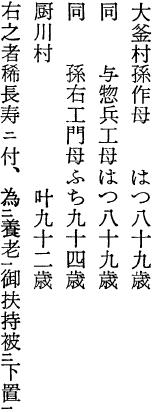 大釜村孫作母　　はつ八十九歳
同　　与惣兵工母はつ八十九歳
同　　孫右工門母ふち九十四歳
厨川村　　　　　叶九十二歳
右之者稀長寿ニ付、為㆓養老㆒御扶持被㆓下置㆒